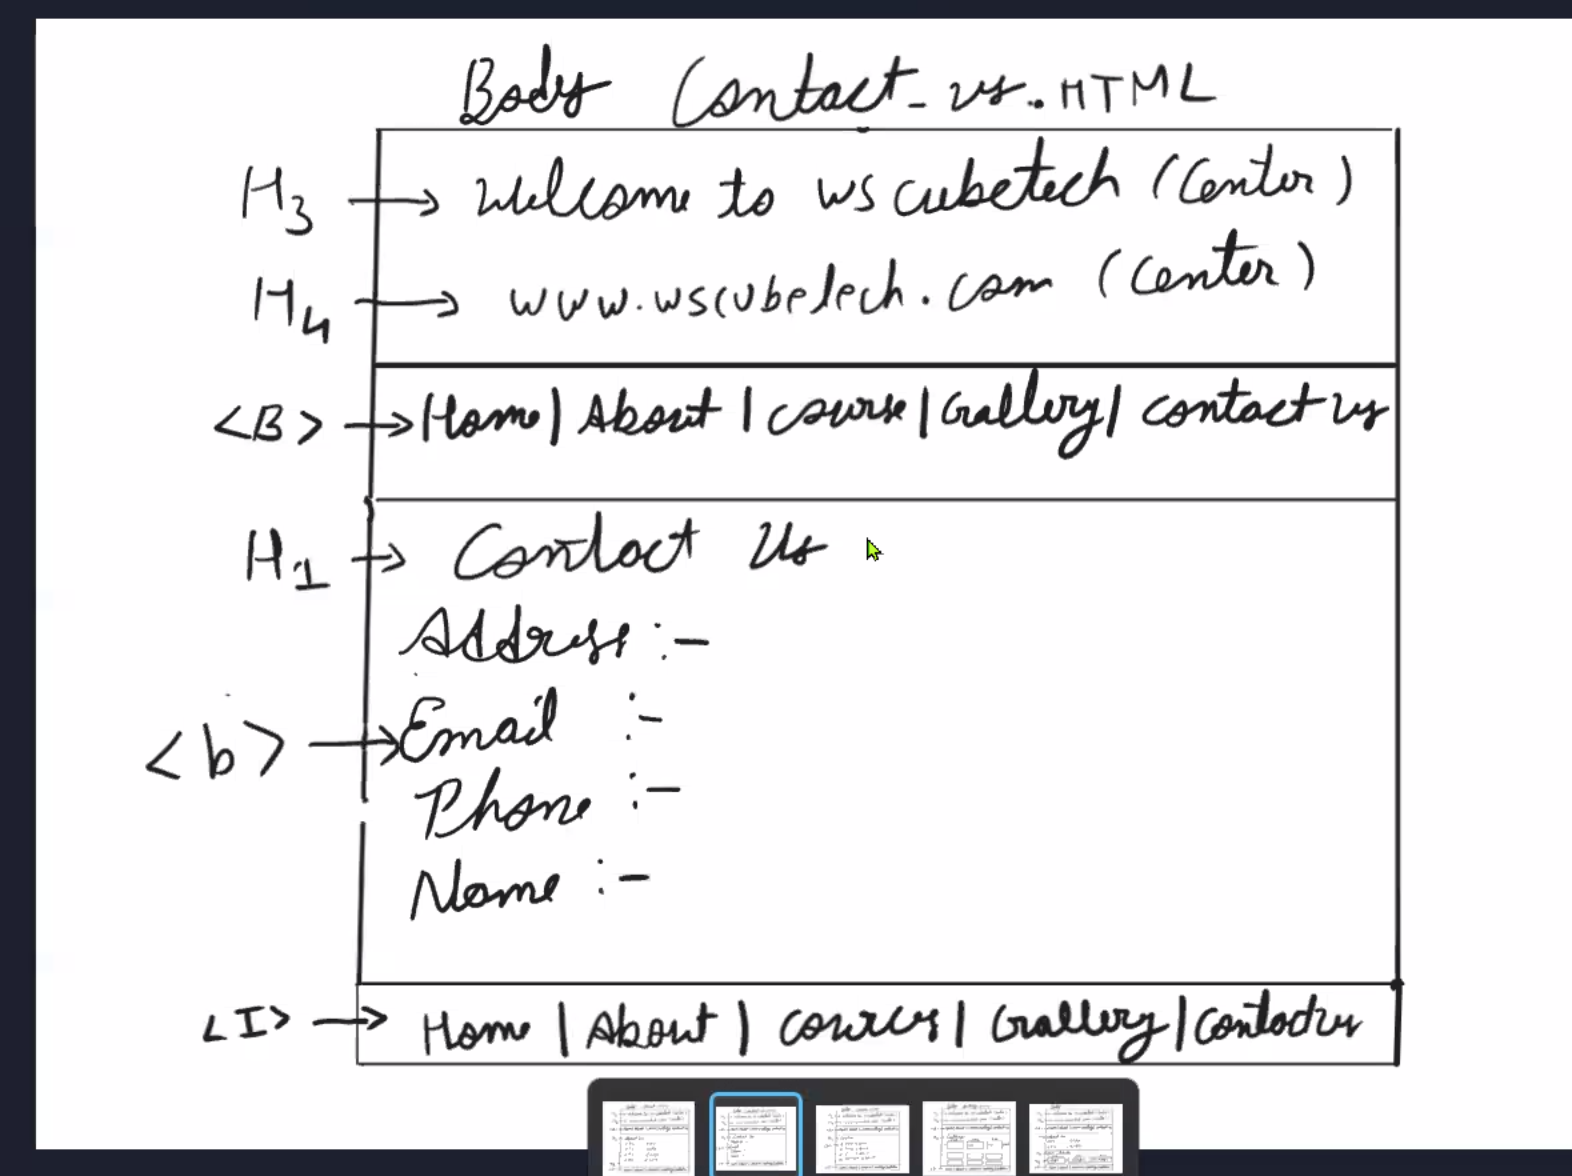 Body Contact-us.HTML
H3 → Welcome to wscubetech (Center)
H4 → www.wscubetech.com (Center)
<B> → Home | About | course | Gallery | contact us
H1 → Contact Us
Address :-
<b> → Email :-
Phone :-
Name :-
<I> → Home | About | courses | Gallery | contact us